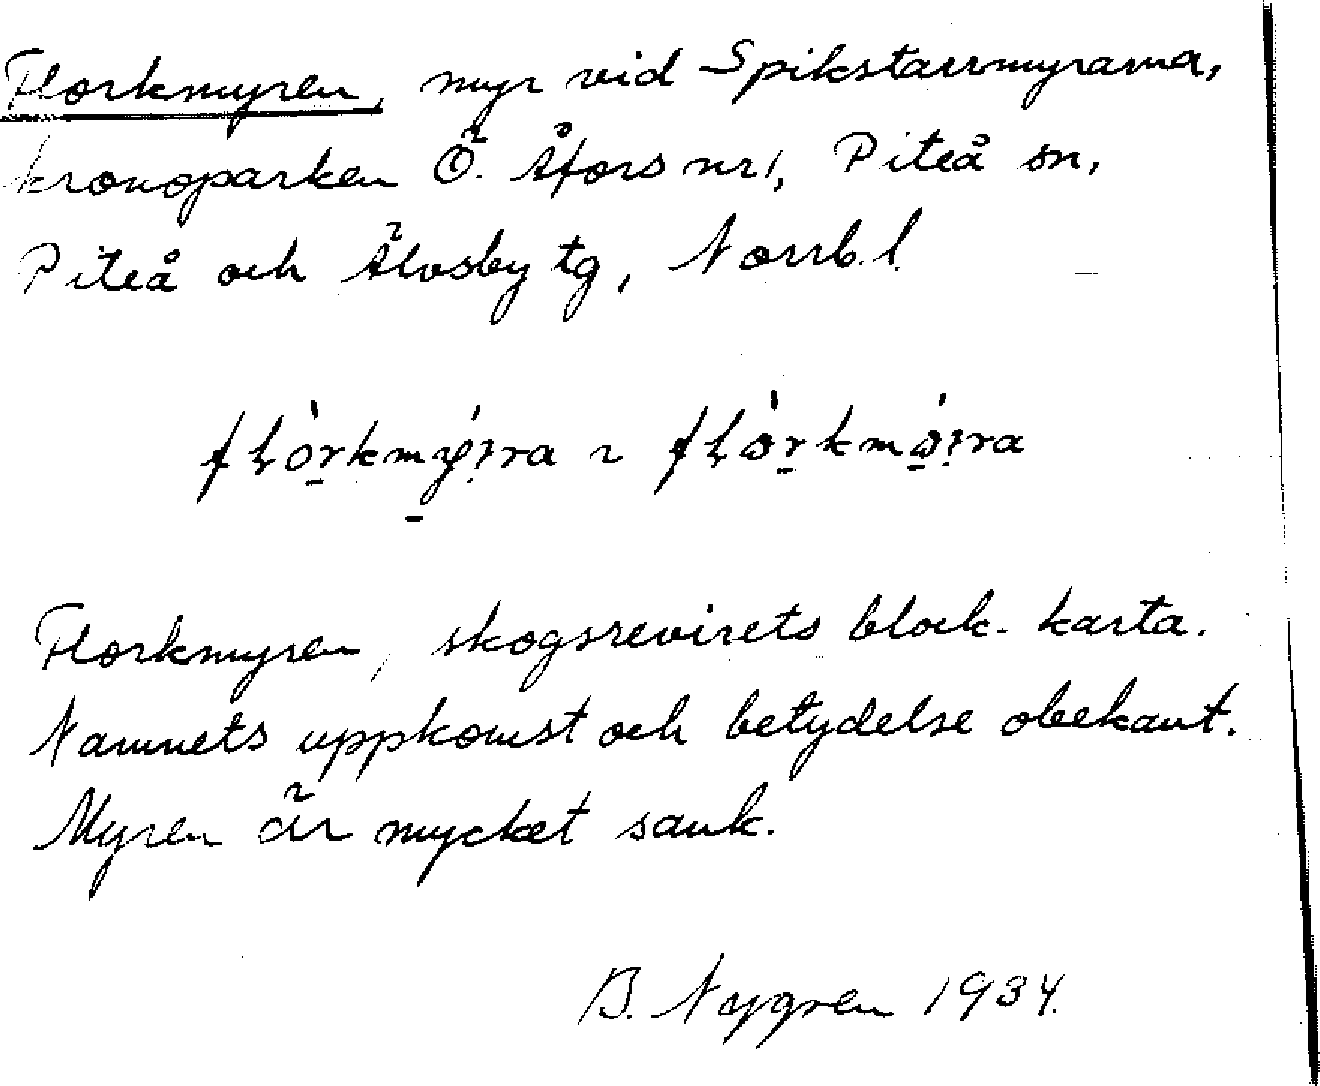 Florkmyren, myr vid Spikstarrmyrarna,
kronoparken Ö. Åfors nr 1, Piteå sn,
Piteå och Älvsby tg, Norrb. l.
Florkmyren, skogsrevirets block-karta.
Namnets uppkomst och betydelse obekant.
Myren är mycket sank.
B. Nygren 1934.